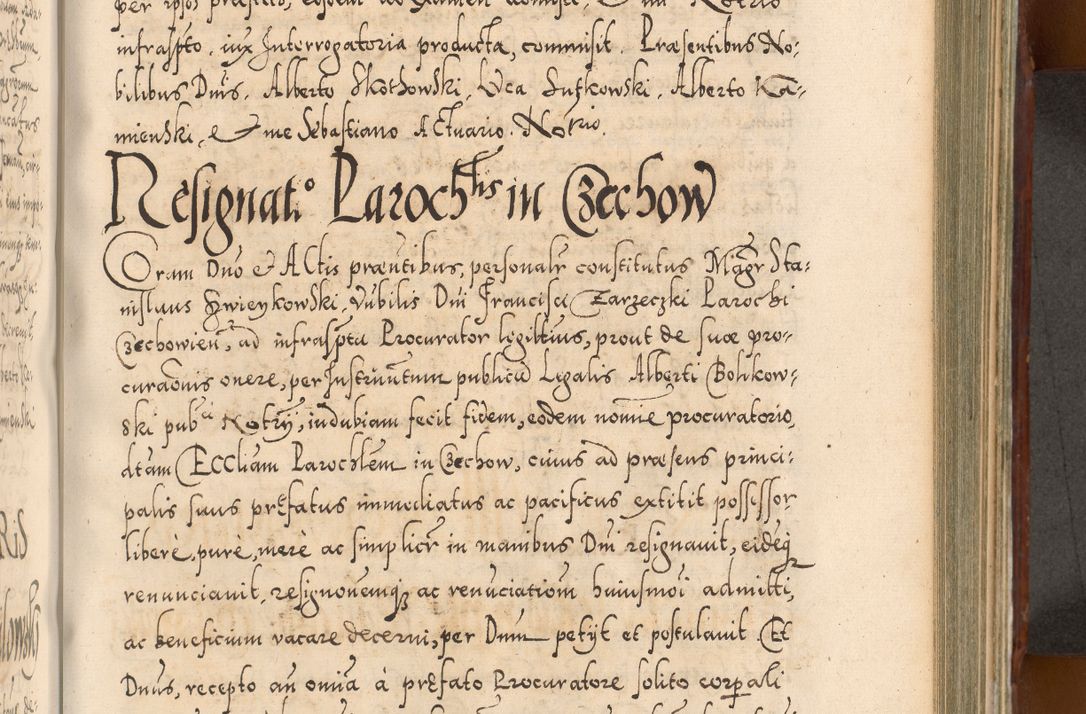 infrasp̃to. iux Interrogatoria producta, commisit. Præsentibus No-
bilibus Dñis. Alberto Skothowski, Luca Sutkowski, Alberto Ka-
mienski, & me Sebastiano Actuario. Notrio.
Resignat.o Paroch.lis in Czechow
Coram Dño & Actis præñtibus, personalr constitutus Magr Sta-
nislaus Zwienkowski, Nubilis Dñi Francisci Zarzeczki Parochi
Czechowieñ, ad infrasp̃ta Procurator legittius, prout de suæ pro-
curaõnis onere, per Instruñtum publicũ Legalis Alberti Bolikow-
ski pub.ci Notrij, indubiam fecit fidem, eodem nomiẽ procuratorio,
dtam Eccliam Parochlem in Czechow, cuius ad præsens princi-
palis suus prefatus immediatus ac pacificus extitit possessor
liberè, purè, merè ac simplicr in manibus Dñi resignauit, eidẽq
renunciauit, resignõnemq ac renũciationẽ huiusmoi admitti,
ac beneficium vacare decerni, per Dnum petijt et postulauit. Et
Dnus, recepto añ omĩa à prefato Procuratore solito corpali